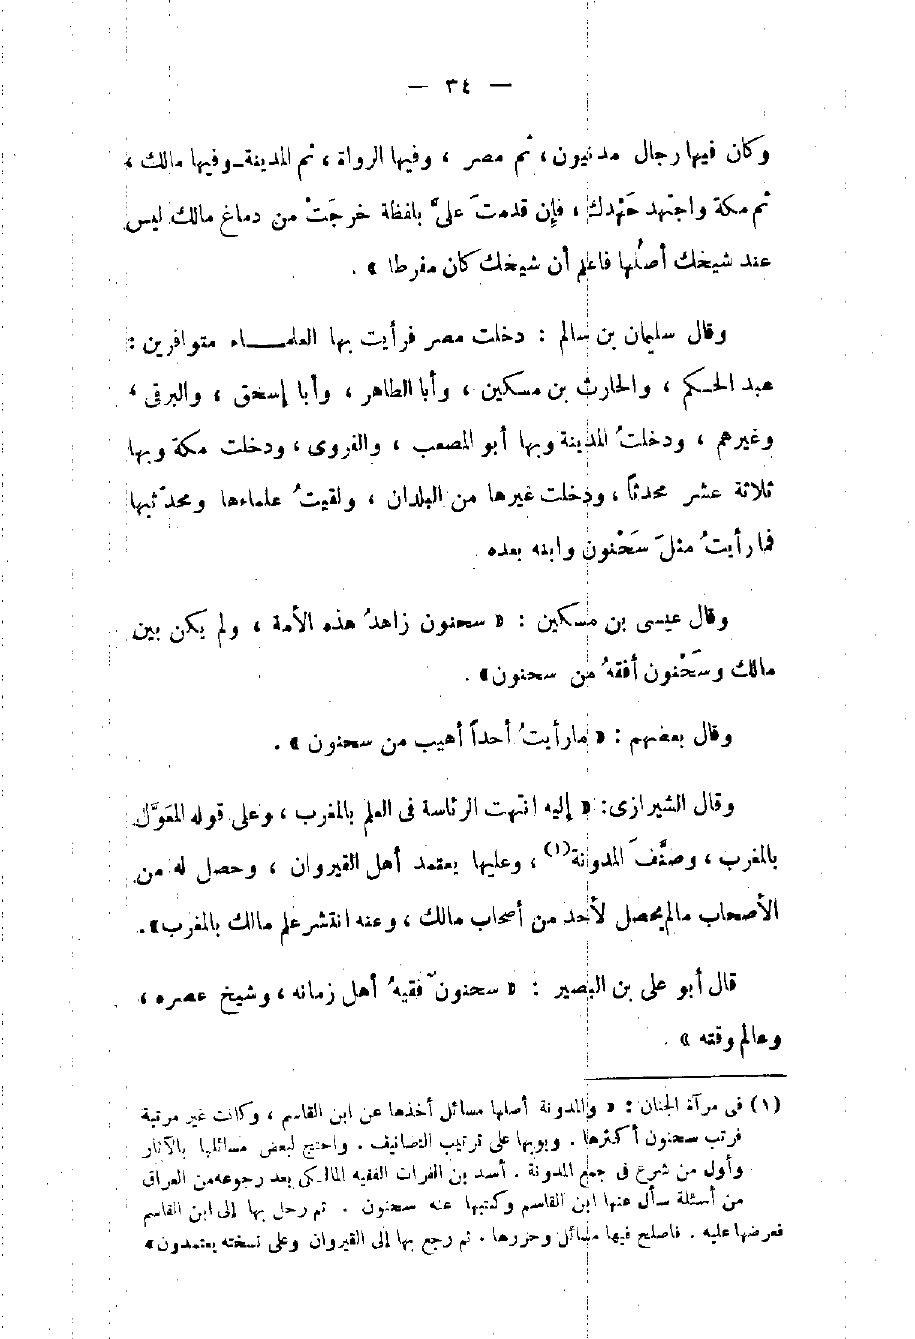 — ٣٤ —
وكان فيها رجال مدنيون ، ثم مصر ، وفيها الرواة ، ثم المدينة ــ وفيها مالك ،
ثم مكة واجتهد جَهْدك ، فإن قدمتَ علىَّ بلفظة خرجَتْ من دماغ مالك ليس
عند شيخك أصلُها فاعلم أن شيخك كان مفرطا » .
وقال سليمان بن سالم : دخلت مصر فرأيت بها العلمــــاء متوافرين :
عبد الحكم ، والحارث بن مسكين ، وأبا الطاهر ، وأبا إسحق ، والبرقى ،
وغيرهم ، ودخلتُ المدينة وبها أبو المصعب ، والفروى ، ودخلت مكة وبها
ثلاثة عشر محدثاً ، ودخلت غيرها من البلدان ، ولقيتُ علماءها ومحدّثيها
فما رأيتُ مثلَ سَحْنون وابنه بعده .
وقال عيسى بن مسكين : « سحنون زاهدُ هذه الأمة ، ولم يكن بين
مالك وسَحْنون أفقهُ من سحنون » .
وقال بعضهم : « مارأيتُ أحداً أهيب من سحنون » .
وقال الشيرازى : « إليه انتهت الرئاسة فى العلم بالمغرب ، وعلى قوله المعَوَّل
بالمغرب ، وصنَّفَ المدونة (١) ، وعليها يعتمد أهل القيروان ، وحصل له من
الأصحاب مالم يحصل لأحد من أصحاب مالك ، وعنه انتشر علم مالك بالمغرب » .
قال أبو على بن البصير : « سحنونٌ فقيهُ أهل زمانه ، وشيخ عصره ،
وعالم وقته » .
(١) فى مرآة الجنان : « والمدونة أصلها مسائل أخذها عن ابن القاسم ، وكانت غير مرتبة
فرتب سحنون أكثرها . وبوبها على ترتيب التصانيف . واحتج لبعض مسائلها بالآثار
وأول من شرع فى جمع المدونة . أسد بن الفرات الفقيه المالكى بعد رجوعه من العراق
من أسئلة سأل عنها ابن القاسم وكتبها عنه سحنون . ثم رحل بها إلى ابن القاسم
فعرضها عليه . فاصلح فيها مسائل وحررها . ثم رجع بها إلى القيروان وعلى نسخته يعتمدون »